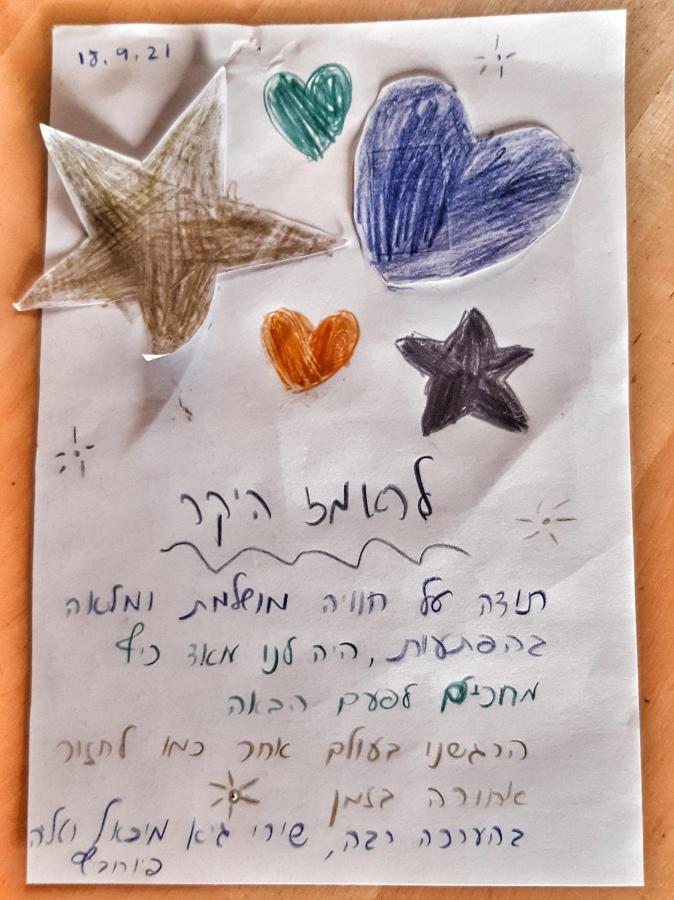 18.9.21
לראמז היקר
תודה על חוויה מושלמת ומלאה
בהפתעות, היה לנו מאד כיף
מחכים לפעם הבאה
הרגשנו בעולם אחר כמו לחזור
אחורה בזמן
בהערכה רבה, שירי גיא מיכאל ואלה